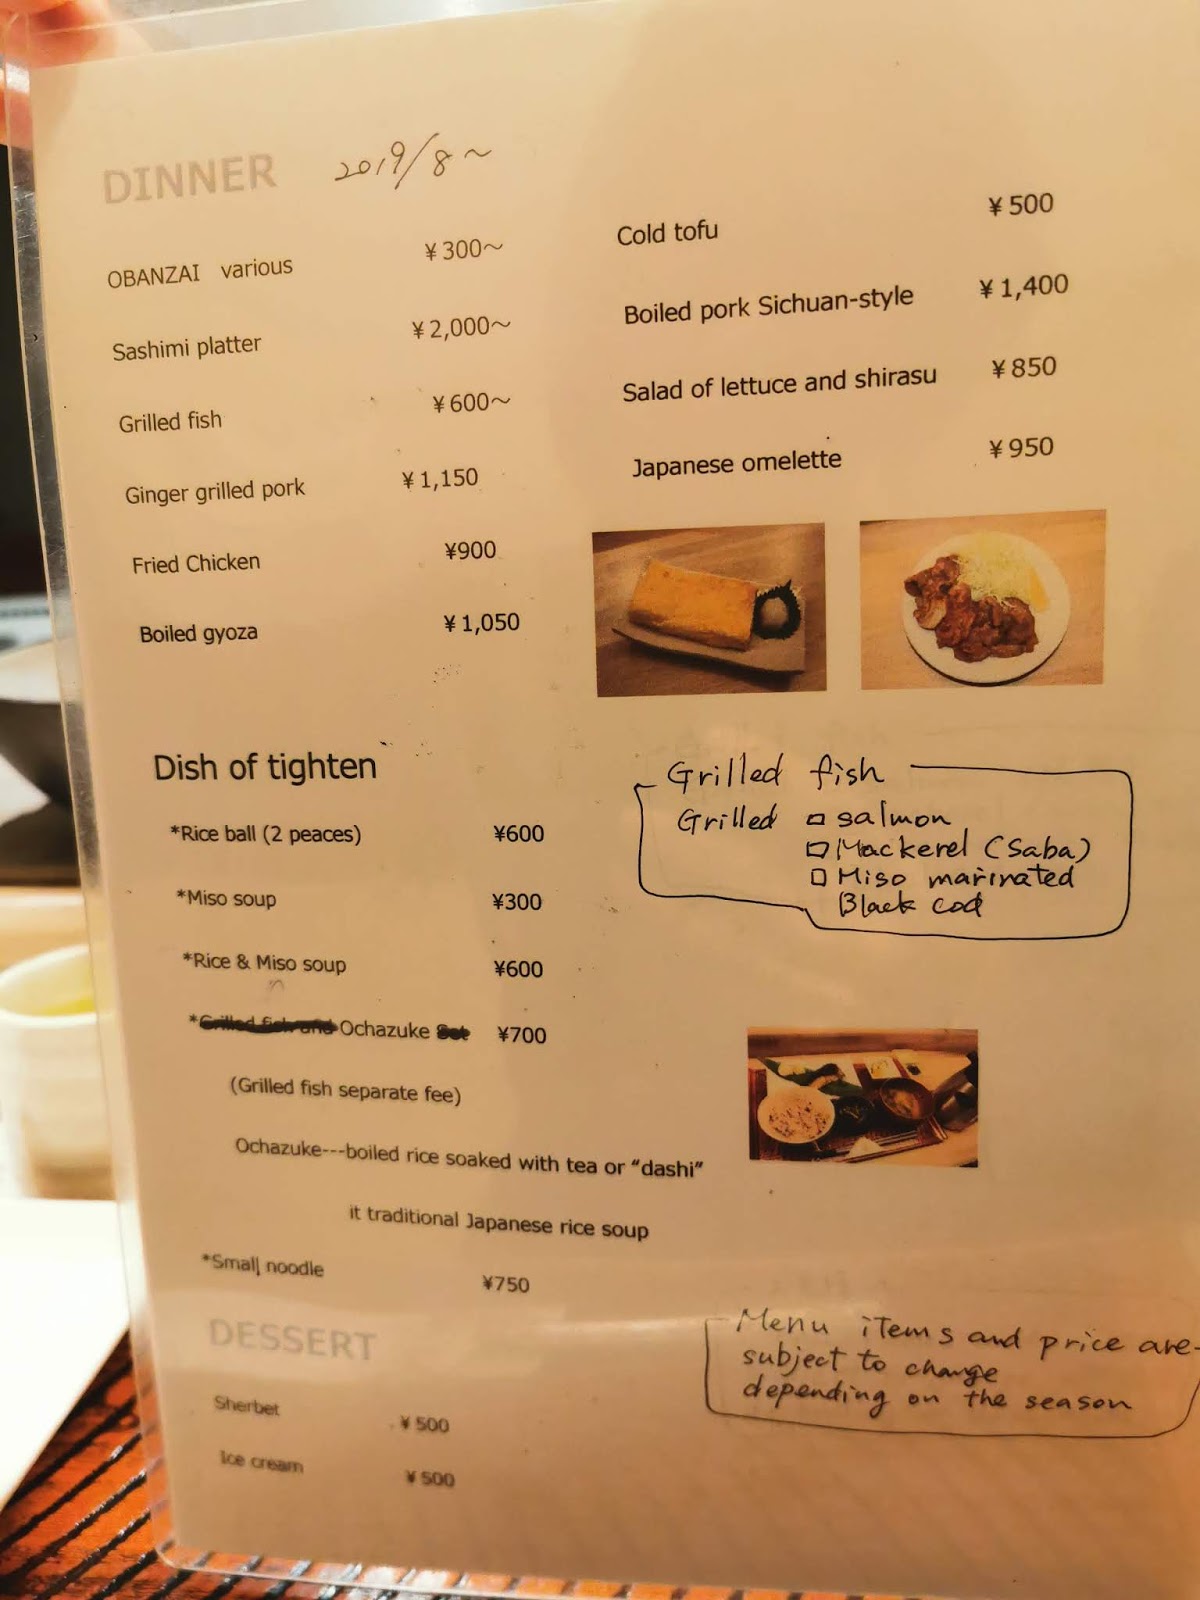 DINNER 2019/8~
OBANZAI various ¥300~
Sashimi platter ¥2,000~
Grilled fish ¥600~
Ginger grilled pork ¥1,150
Fried Chicken ¥900
Boiled gyoza ¥1,050
Cold tofu ¥500
Boiled pork Sichuan-style ¥1,400
Salad of lettuce and shirasu ¥850
Japanese omelette ¥950
Dish of tighten
*Rice ball (2 peaces) ¥600
*Miso soup ¥300
*Rice & Miso soup ¥600
*Grilled fish and Ochazuke Set ¥700
(Grilled fish separate fee)
Ochazuke---boiled rice soaked with tea or “dashi”
it traditional Japanese rice soup
*Small noodle ¥750
Grilled fish
Grilled □ salmon
□ Mackerel (Saba)
□ Miso marinated
Black cod
DESSERT
Sherbet ¥500
Ice cream ¥500
Menu items and price are
subject to change
depending on the season